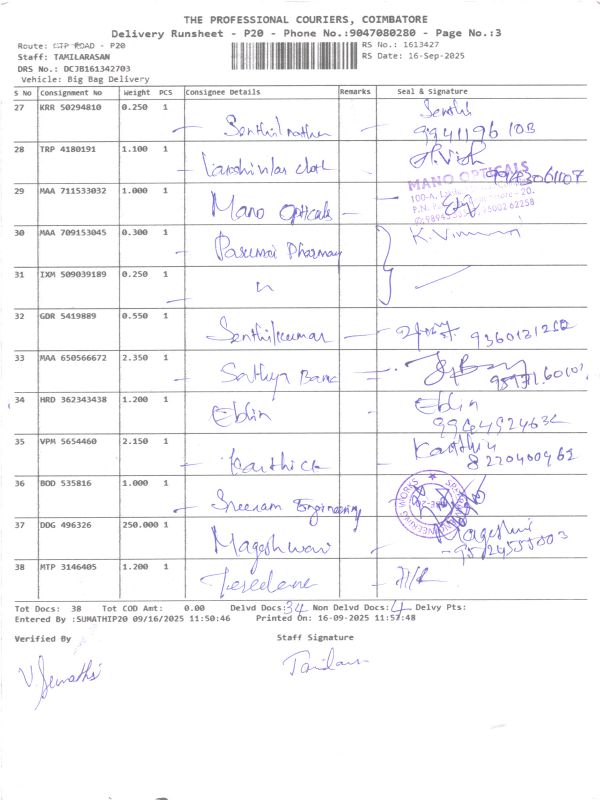 THE PROFESSIONAL COURIERS, COIMBATORE
Delivery Runsheet - P20 - Phone No.:9047080280 - Page No.:3
Route: CTP ROAD - P20 RS No.: 1613427
Staff: TAMILARASAN RS Date: 16-Sep-2025
DRS No.: DCJB161342703
Vehicle: Big Bag Delivery
S No Consignment No Weight PCS Consignee Details Remarks Seal & Signature
27 KRR 50294810 0.250 1 Senthilnathan Senthil
9941196103
28 TRP 4180191 1.100 1
9943061107
29 MAA 711533032 1.000 1 Mano Opticals MANO OPTICALS
30 MAA 709153045 0.300 1 Pasumai Pharmacy
31 IXM 509039189 0.250 1 "
32 GDR 5419889 0.550 1 Senthilkumar
33 MAA 650566672 2.350 1 Sathya Bama
34 HRD 362343438 1.200 1 Eblin Eblin
35 VPM 5654460 2.150 1 Karthick Karthick
8220400462
36 BOD 535816 1.000 1 Sreeram Engineering
37 DDG 496326 250.000 1 Mageshwari Mageshwari
38 MTP 3146405 1.200 1
Tot Docs: 38 Tot COD Amt: 0.00 Delvd Docs: 34 Non Delvd Docs: 4 Delvy Pts:
Entered By :SUMATHIP20 09/16/2025 11:50:46 Printed On: 16-09-2025 11:57:48
Verified By Staff Signature
V. Sumathi